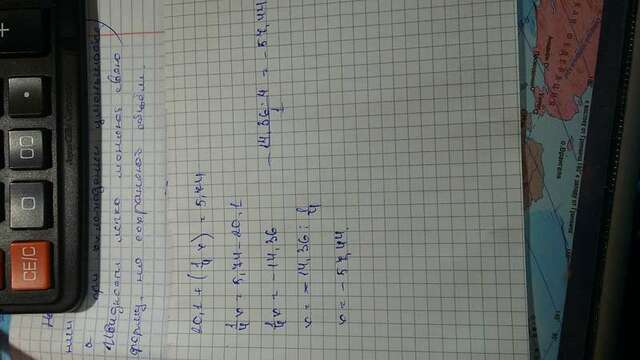 CE/C
0
00
+
при охлаждении уменьшается
Жидкости легко меняют свою
форму, но сохраняют объём.
20,1 + (1/4 x) = 5,74
1/4 x = 5,74 - 20,1
1/4 x = -14,36
x = -14,36 : 1/4
x = -57,44.
- 14,36 · 4 / 1 = -57,44
о.Врангеля